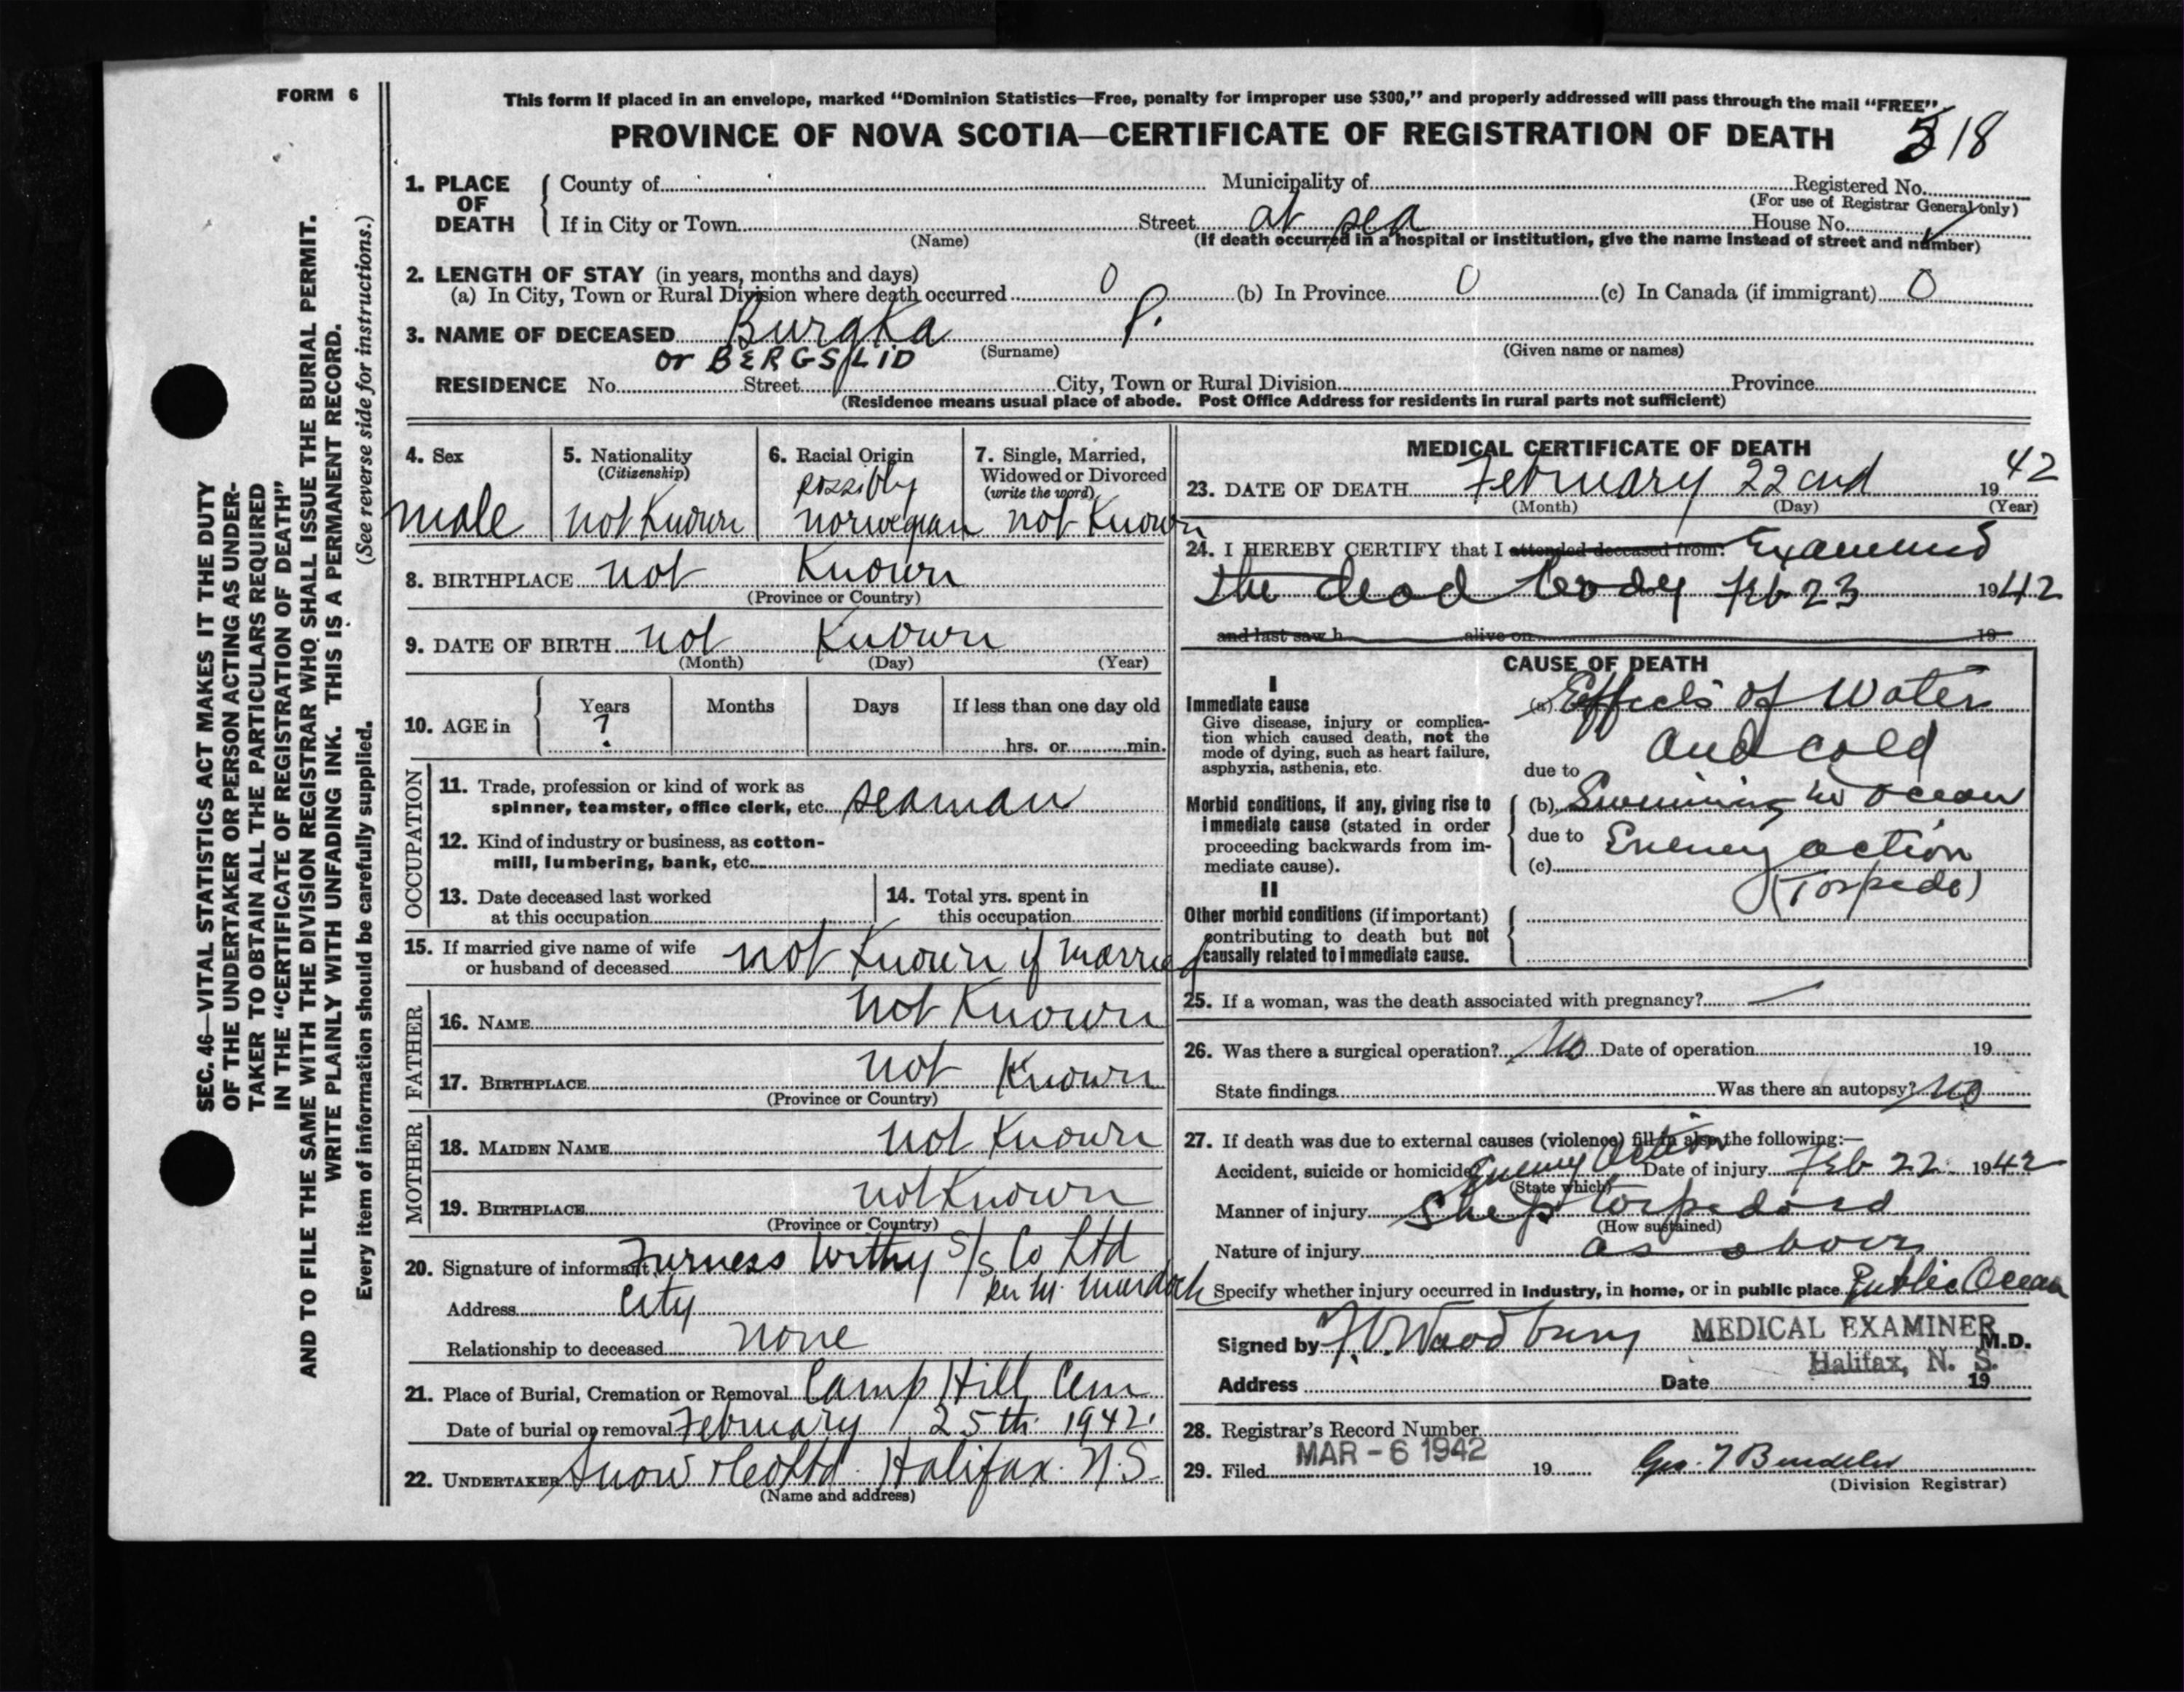 FORM 6
This form if placed in an envelope, marked “Dominion Statistics—Free, penalty for improper use $300,” and properly addressed will pass through the mail “FREE”
PROVINCE OF NOVA SCOTIA—CERTIFICATE OF REGISTRATION OF DEATH
318
1. PLACE OF DEATH County of Municipality of Registered No.
(For use of Registrar General only)
If in City or Town Street at sea House No.
(Name) (If death occurred in a hospital or institution, give the name instead of street and number)
2. LENGTH OF STAY (in years, months and days)
(a) In City, Town or Rural Division where death occurred 0 (b) In Province 0 (c) In Canada (if immigrant) 0
3. NAME OF DECEASED Burgka P.
(Surname) (Given name or names)
or BERGSLID
RESIDENCE No. Street City, Town or Rural Division Province
(Residence means usual place of abode. Post Office Address for residents in rural parts not sufficient)
4. Sex male
5. Nationality (Citizenship) not Known
6. Racial Origin possibly norwegian
7. Single, Married, Widowed or Divorced (write the word) not Known
8. BIRTHPLACE not Known
(Province or Country)
9. DATE OF BIRTH not Known
(Month) (Day) (Year)
10. AGE in Years ? Months Days If less than one day old
hrs. or min.
OCCUPATION
11. Trade, profession or kind of work as
spinner, teamster, office clerk, etc. seaman
12. Kind of industry or business, as cotton-
mill, lumbering, bank, etc.
13. Date deceased last worked
at this occupation
14. Total yrs. spent in
this occupation
15. If married give name of wife
or husband of deceased not Known if married
FATHER
16. NAME not Known
17. BIRTHPLACE not Known
(Province or Country)
MOTHER
18. MAIDEN NAME not Known
19. BIRTHPLACE not Known
(Province or Country)
20. Signature of informant Furness Withy S/S Co Ltd
per M. Murdoch
Address City
Relationship to deceased none
21. Place of Burial, Cremation or Removal Camp Hill Cem
Date of burial or removal February 25th 1942.
22. UNDERTAKER Snow & Co Ltd. Halifax. N.S
(Name and address)
MEDICAL CERTIFICATE OF DEATH
23. DATE OF DEATH February 22 cnd 1942
(Month) (Day) (Year)
24. I HEREBY CERTIFY that I attended deceased from: Examined
the dead body Feb 23 1942
and last saw h alive on 19
CAUSE OF DEATH
I
Immediate cause
Give disease, injury or complica-
tion which caused death, not the
mode of dying, such as heart failure,
asphyxia, asthenia, etc.
(a) Effects of Water
and cold
due to
Morbid conditions, if any, giving rise to
immediate cause (stated in order
proceeding backwards from im-
mediate cause).
(b) Swimming in Ocean
due to
(c) Enemy action
(Torpedo)
II
Other morbid conditions (if important)
contributing to death but not
causally related to immediate cause.
25. If a woman, was the death associated with pregnancy?
26. Was there a surgical operation? No Date of operation 19
State findings Was there an autopsy? No
27. If death was due to external causes (violence) fill in also the following:—
Accident, suicide or homicide Enemy Action Date of injury Feb 22 1942
(State which)
Manner of injury Ship torpedoed
(How sustained)
Nature of injury as above
Specify whether injury occurred in Industry, in home, or in public place Public Ocean
Signed by F.V. Woodbury MEDICAL EXAMINER M.D.
Halifax, N. S.
Address Date 19
28. Registrar's Record Number
29. Filed MAR - 6 1942 19
(Division Registrar)
SEC. 46—VITAL STATISTICS ACT MAKES IT THE DUTY
OF THE UNDERTAKER OR PERSON ACTING AS UNDER-
TAKER TO OBTAIN ALL THE PARTICULARS REQUIRED
IN THE “CERTIFICATE OF REGISTRATION OF DEATH”
AND TO FILE THE SAME WITH THE DIVISION REGISTRAR WHO SHALL ISSUE THE BURIAL PERMIT.
WRITE PLAINLY WITH UNFADING INK. THIS IS A PERMANENT RECORD.
Every item of information should be carefully supplied. (See reverse side for instructions.)